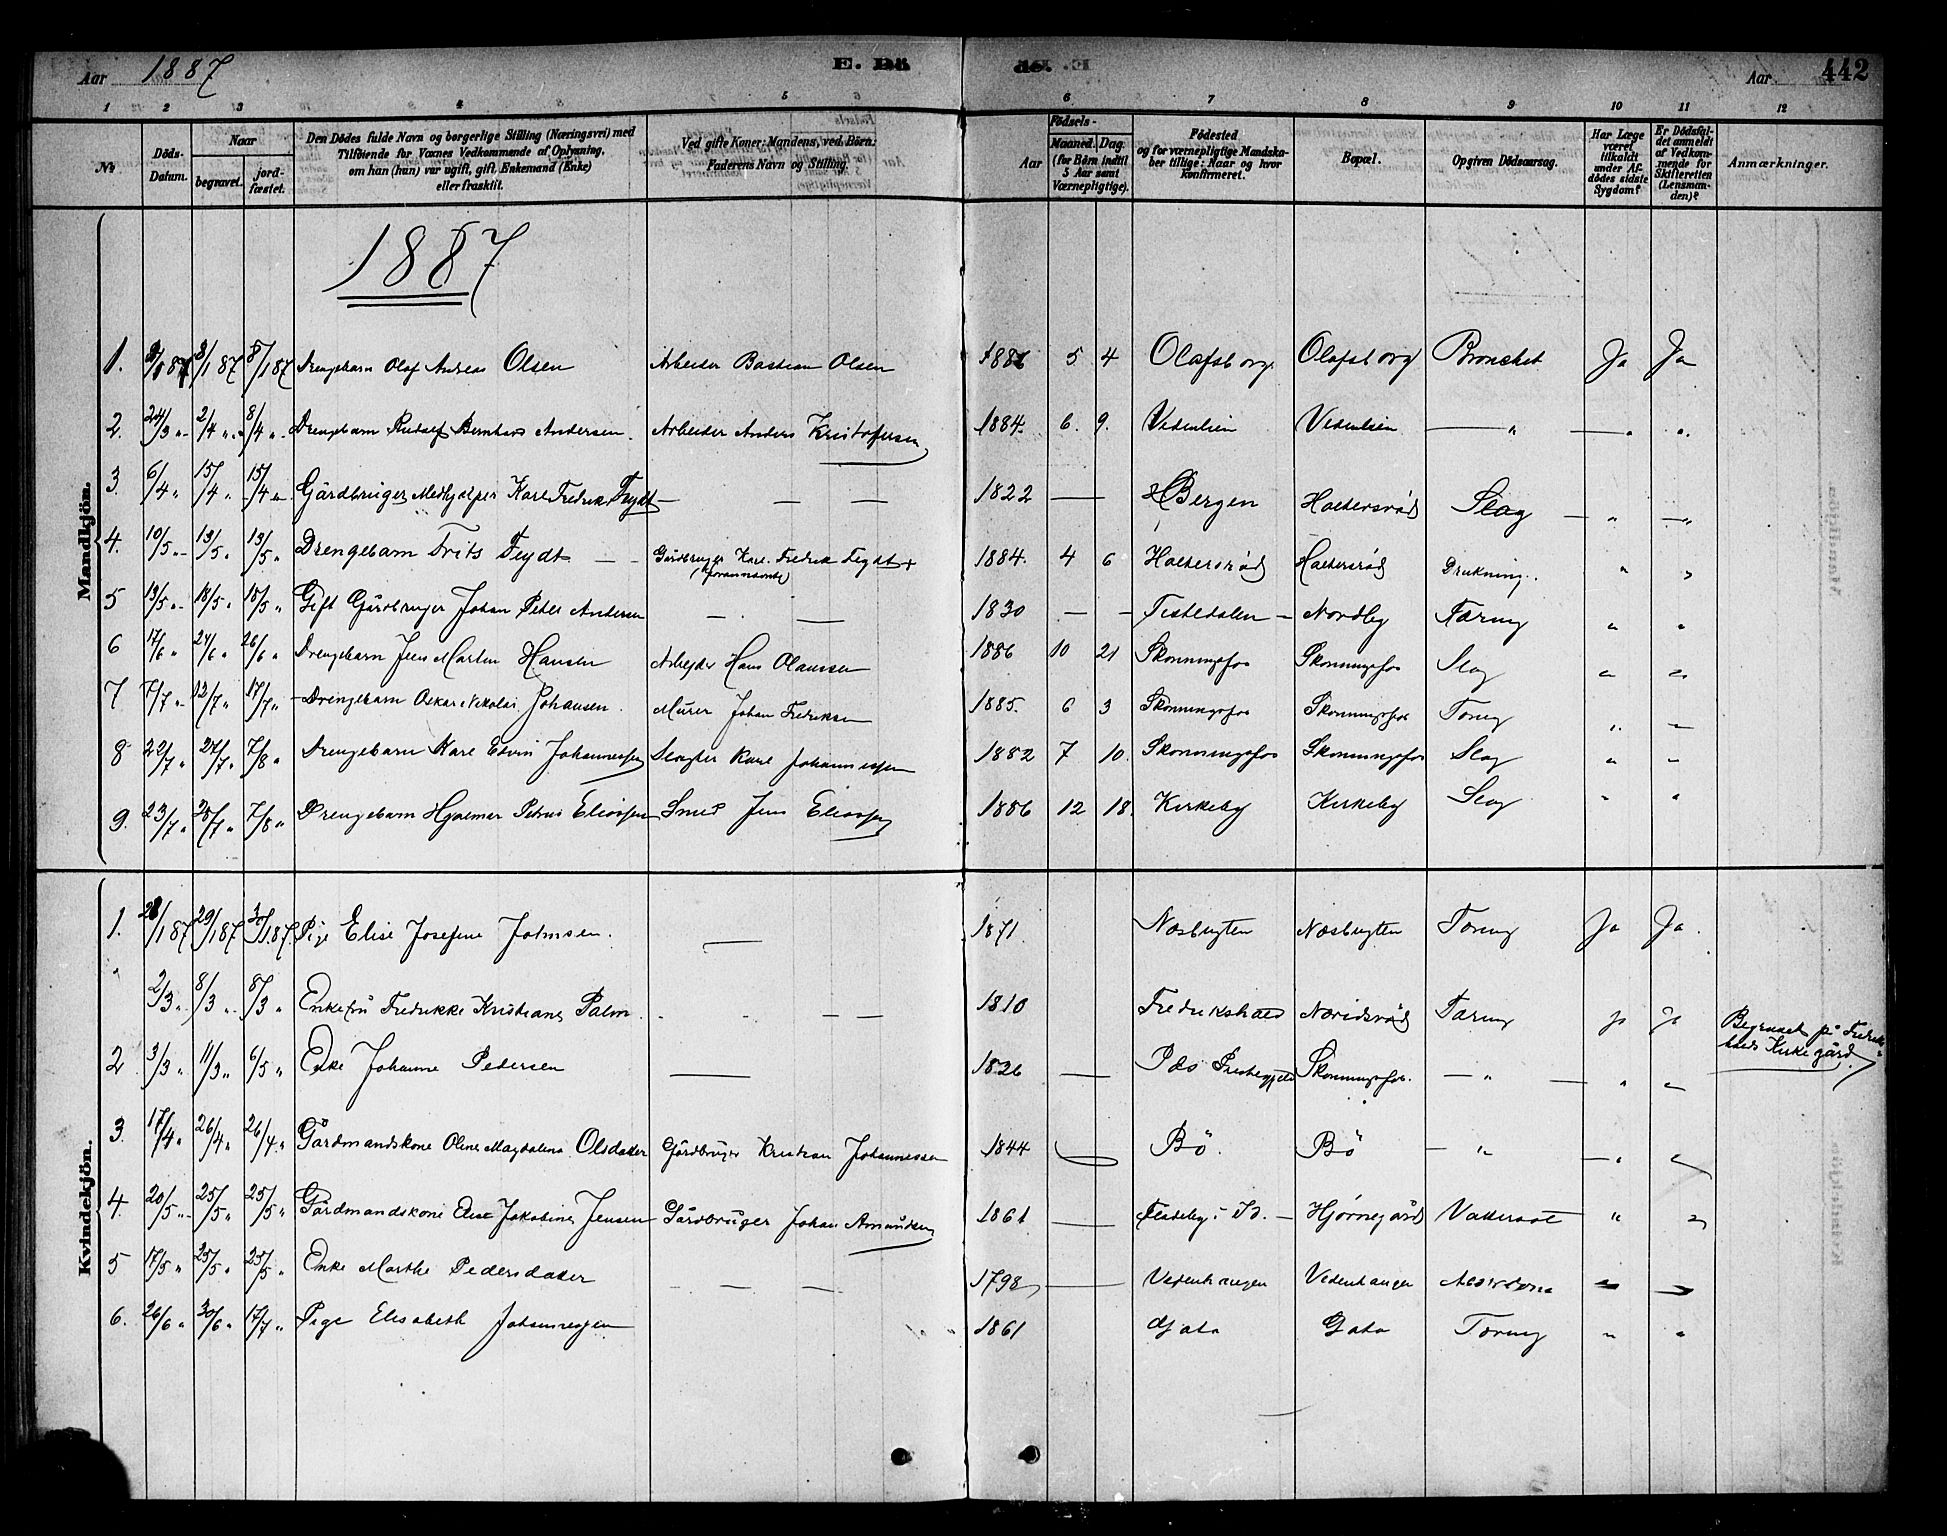 Aar 1887 E. Dö de. Aar 442
1 2 3 4 5 6 7 8 9 10 11 12
№ Döds-Datum. Naar begravet. jord-fæstet. Den Dödes fulde Navn og borgerlige Stilling (Næringsvei) med Tilföiende for Voxnes Vedkommende af Oplysning, om han (hun) var ugift, gift, Enkemand (Enke) eller fraskilt. Ved gifte Koner: Mandens, ved Börn: Faderens Navn og Stilling. Födsels- Aar Maaned. Dag. (for Börn indtil 5 Aar samt Værnepligtige). Födested og for værnepligtige Mandska-ber tillige: Naar og hvor konfirmeret. Bopæl. Opgiven Dödsaarsag. Har Læge været tilkaldt under Af-dödes sidste Sygdom? Er Dödsfal-det anmeldt af Vedkom-mende for Skifteretten (Lensman-den)? Anmærkninger.
1887
Mandkjön.
1. 8/1 87 8/1 87 Drengebarn Olaf Andreas Olsen Arbeider Bastian Olsen 5 4 Olafsborg Olafsborg Bronchit Ja Ja
2. 24/3 „ 2/4 „ 8/4 „ Drengebarn Rudolf Bernhard Andersen. Arbeider Anders Kristofersen 1884. 6. 9. Vedenlien Vedenlien — „ — „ „
3. 6/4 „ 15/4 „ 15/4 „ Gårdbruger Medhjælper Karl Fredrik Feydt — — — 1822 — Bergen Holtersrød Slag — „ — „
4. 10/5 „ 13/5 „ 13/5 „ Drengebarn Frits Feydt — — Gårdbruger Karl Fredrik Feydt + 1884. 4 6 Holtersrød Holtersrød Drukning. „ „
5 13/5 „ 18/5 „ 18/5 „ Gift Gårdbruger Johan Peter Andersen — — 1830 — — Tistedalen — Nordby Tæring „ „
6 17/6 „ 24/6 „ 26/6 „ Drengebarn Jens Martin Hansen Arbejder Hans Olaussen 1886 10 21 Skonningsfos Skonningsfos Slag „ „
7 7/7 „ 12/7 „ 17/7 „ Drengebarn Oskar Nikolai Johansen. Murer Johan Fredriksen 1885. 6 3 Skonningsfos Skonningsfos Tæring „ „
8 22/7 „ 27/7 „ 7/8 „ Drengebarn Karl Edvin Johannessen Slagter Karl Johannessen 1882 7 10. Skonningsfos Skonningsfos Slag „ „
9. 23/7 „ 28/7 „ 7/8 „ Drengebarn Hjalmar Petrus Eliassen Smed Jens Eliassen 1886 12 18. Kirkeby Kirkeby Slag „ „
Kvindekjön.
1. 29/1 87 30/1 87. Pige Elise Josefine Johnsen. — 1871. Næsbugten Næsbugten Tæring Ja Ja.
„ 2/3 „ 8/3 „ 8/3 „ Enkefru Fredrikke Kristiane Palm. — — 1810 Fredrikshald Tæring ja ja Begravet på Fredriks-
halds Kirkegård.
2 3/3 „ 11/3 „ 6/5 „ Enke Johanne Pedersen — 1826 — Præstegjeld Skonningsfos. — „ — „ „
3. 17/4 „ 26/4 „ 26/4 „ Gårdmandskone Oline Magdalena Olsdatter Gårdbruger Kristian Johannessen 1844 — Bö. Bö — „ — „ „
4. 20/5 „ 25/5 „ 25/5 „ Gårdmandskone Else Jakobine Jensen Gårdbruger Johan Amundsen 1861 — Fladeby i Id. — Hjørnegård Vattersot — „ „
5 17/5 „ 25/5 „ 25/5 „ Enke Marthe Pedersdatter — — — 1798 — Vedenhaugen Vedenhaugen Alderdom „ „
6. 26/6 „ 30/6 „ 17/7 „ Pige Elisabeth Johannessen 1861 Gata Gata Tæring „ „